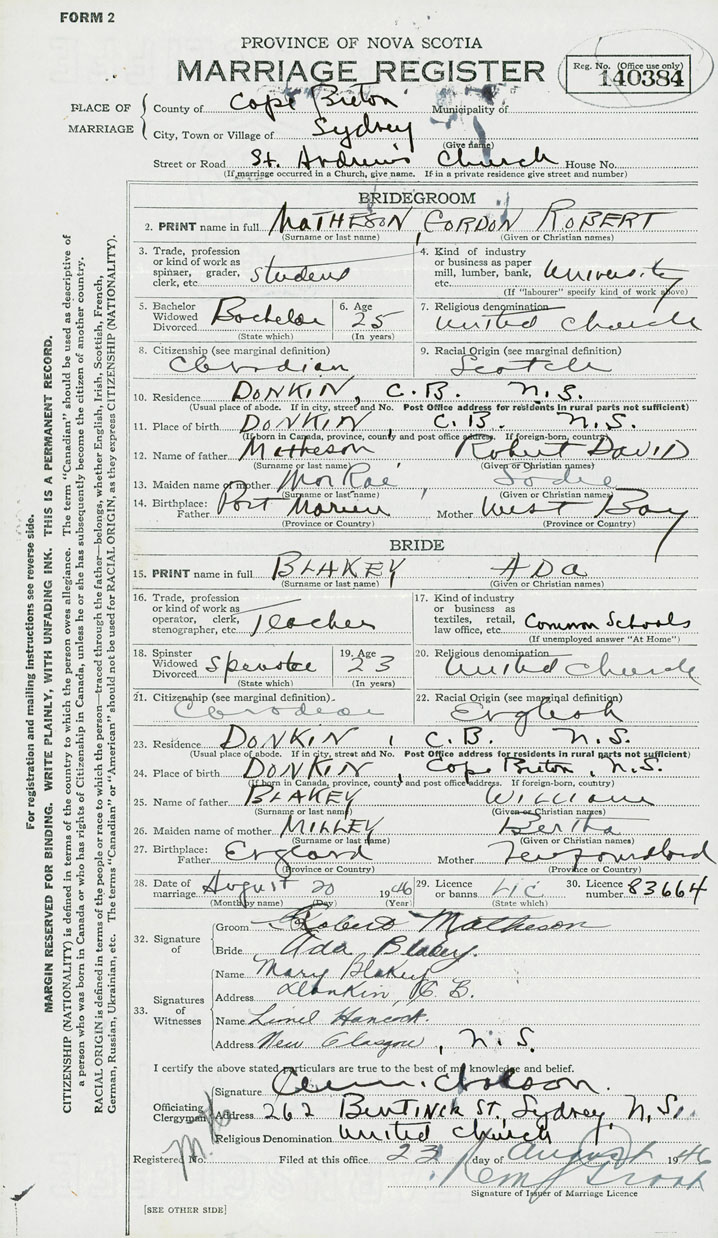 FORM 2
PROVINCE OF NOVA SCOTIA
MARRIAGE REGISTER
Reg. No. (Office use only)
140384
PLACE OF MARRIAGE
County of Cape Breton Municipality of
City, Town or Village of Sydney
(Give name)
Street or Road St. Andrew's Church House No.
(If marriage occurred in a Church, give name. If in a private residence give street and number)
BRIDEGROOM
2. PRINT name in full MATHESON, GORDON ROBERT
(Surname or last name) (Given or Christian names)
3. Trade, profession or kind of work as spinner, grader, clerk, etc. Student
4. Kind of industry or business as paper mill, lumber, bank, etc. University
(If "labourer" specify kind of work above)
5. Bachelor Widowed Divorced Bachelor
(State which)
6. Age 25
(In years)
7. Religious denomination United Church
8. Citizenship (see marginal definition) Canadian
9. Racial Origin (see marginal definition) Scotch
10. Residence DONKIN, C.B. N.S.
(Usual place of abode. If in city, street and No. Post Office address for residents in rural parts not sufficient)
11. Place of birth DONKIN, C.B. N.S.
(If born in Canada, province, county and post office address. If foreign-born, country)
12. Name of father Matheson Robert David
(Surname or last name) (Given or Christian names)
13. Maiden name of mother Sadie
(Surname or last name) (Given or Christian names)
14. Birthplace: Father Port Morien Mother West Bay
(Province or Country) (Province or Country)
BRIDE
15. PRINT name in full BLAKEY ADA
(Surname or last name) (Given or Christian names)
16. Trade, profession or kind of work as operator, clerk, stenographer, etc. Teacher
17. Kind of industry or business as textiles, retail, law office, etc. Common Schools
(If unemployed answer "At Home")
18. Spinster Widowed Divorced Spinster
(State which)
19. Age 23
(In years)
20. Religious denomination United Church
21. Citizenship (see marginal definition). Canadian
22. Racial Origin (see marginal definition) English
23. Residence DONKIN, C.B. N.S.
(Usual place of abode. If in city, street and No. Post Office address for residents in rural parts not sufficient)
24. Place of birth DONKIN, Cape Breton, N.S.
(If born in Canada, province, county and post office address. If foreign-born, country)
25. Name of father BLAKEY William
(Surname or last name) (Given or Christian names)
26. Maiden name of mother MILLEY Bertha
(Surname or last name) (Given or Christian names)
27. Birthplace: Father England Mother Newfoundland
(Province or Country) (Province or Country)
28. Date of marriage August 20 1946
(Month by name) (Day) (Year)
29. Licence or banns Lic
(State which)
30. Licence number 83664
32. Signature of
Groom Robert Matheson
Bride Ada Blakey.
33. Signatures of Witnesses
Name Mary Blakey
Address Donkin, C.B.
Name Lionel Hancock.
Address New Glasgow, N.S.
I certify the above stated particulars are true to the best of my knowledge and belief.
Officiating Clergyman
Signature
Address 262 Bentinck St., Sydney, N.S.
Religious Denomination United Church
Registered No. Filed at this office 23 day of August 1946
Signature of Issuer of Marriage Licence
[SEE OTHER SIDE]
For registration and mailing instructions see reverse side.
MARGIN RESERVED FOR BINDING. WRITE PLAINLY, WITH UNFADING INK. THIS IS A PERMANENT RECORD.
CITIZENSHIP (NATIONALITY) is defined in terms of the country to which the person owes allegiance. The term "Canadian" should be used as descriptive of
a person who was born in Canada or who has rights of Citizenship in Canada, unless he or she has subsequently become the citizen of another country.
RACIAL ORIGIN is defined in terms of the people or race to which the person—traced through the father—belongs, whether English, Irish, Scottish, French,
German, Russian, Ukrainian, etc. The terms "Canadian" or "American" should not be used for RACIAL ORIGIN, as they express CITIZENSHIP (NATIONALITY).